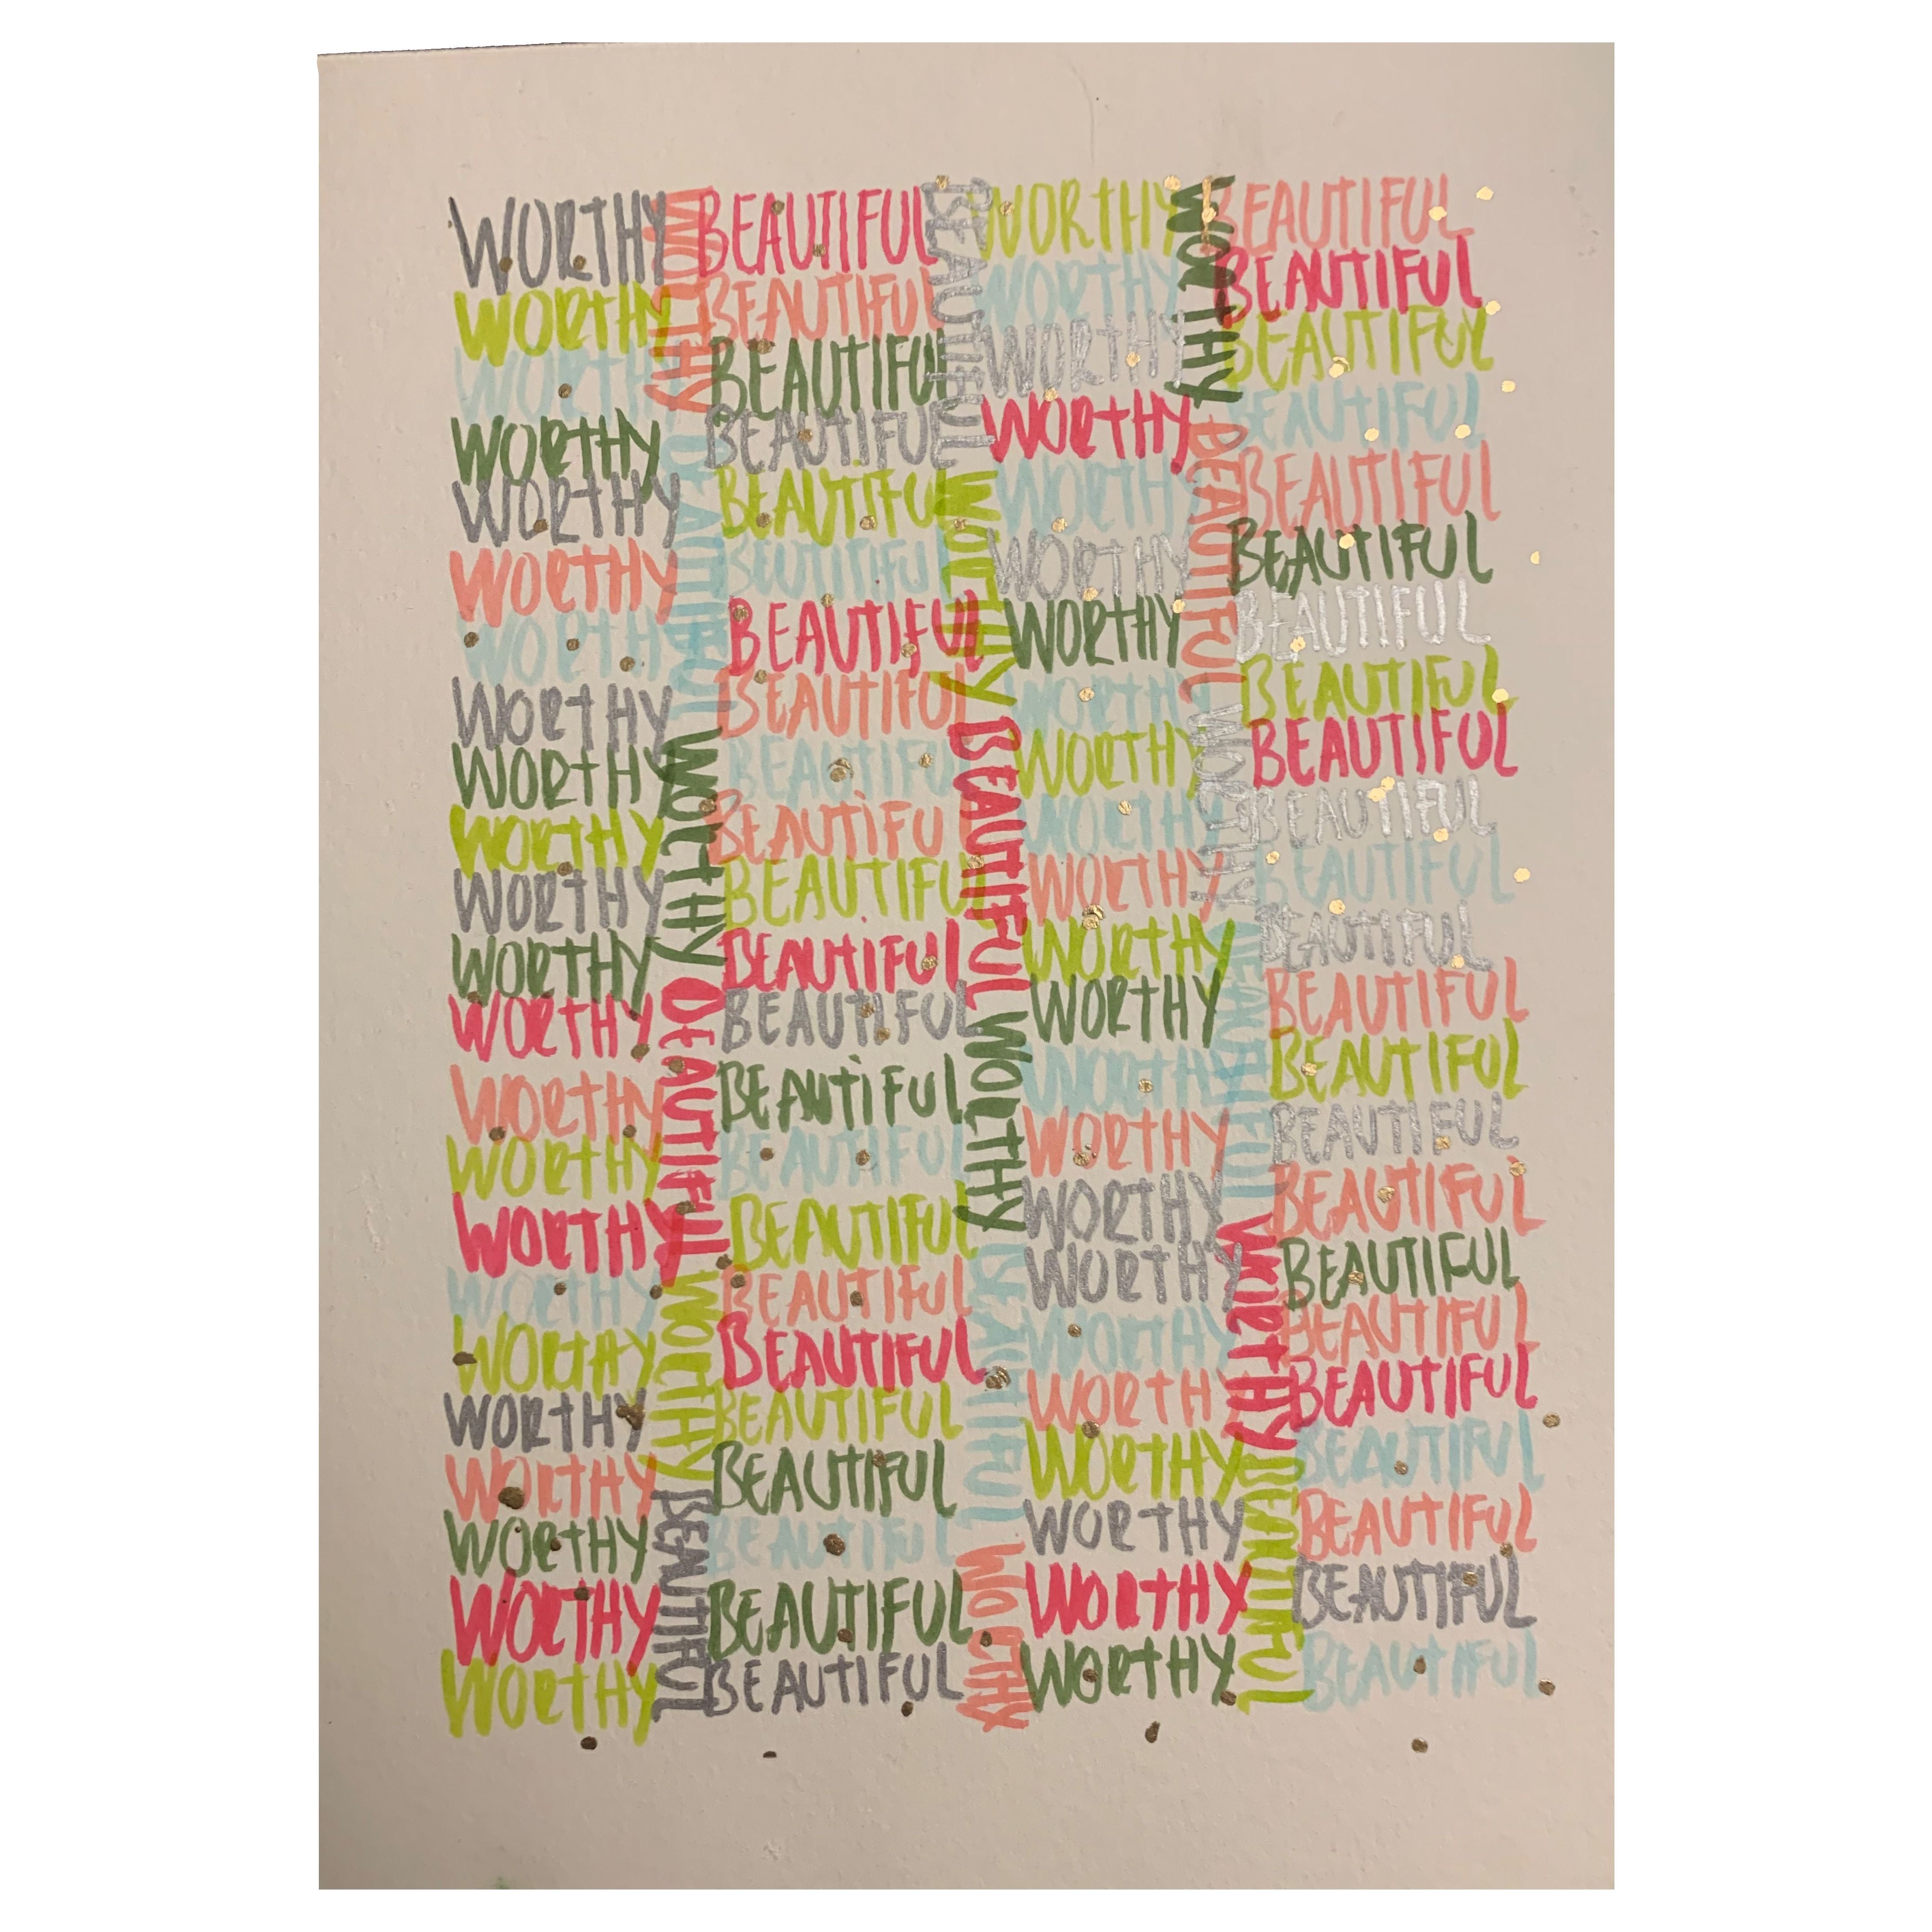 WORTHY BEAUTIFUL WORTHY BEAUTIFUL
WORTHY BEAUTIFUL WORTHY BEAUTIFUL
WORTHY BEAUTIFUL WORTHY BEAUTIFUL
WORTHY BEAUTIFUL WORTHY BEAUTIFUL
WORTHY BEAUTIFUL WORTHY BEAUTIFUL
WORTHY BEUTIFUL WORTHY BEAUTIFUL
WORTHY BEAUTIFUL WORTHY BEAUTIFUL
WORTHY BEAUTIFUL WORTHY BEAUTIFUL
WORTHY BEAUTIFUL WORTHY BEAUTIFUL
WORTHY BEAUTIFUL WORTHY BEAUTIFUL
WORTHY BEAUTIFUL WORTHY BEAUTIFUL
WORTHY BEAUTIFUL WORTHY BEAUTIFUL
WORTHY BEAUTIFUL WORTHY BEAUTIFUL
WORTHY BEAUTIFUL WORTHY BEAUTIFUL
WORTHY BEAUTIFUL WORTHY BEAUTIFUL
WORTHY BEAUTIFUL WORTHY BEAUTIFUL
WORTHY BEAUTIFUL WORTHY BEAUTIFUL
WORTHY BEAUTIFUL WORTHY BEAUTIFUL
WORTHY BEAUTIFUL WORTHY BEAUTIFUL
WORTHY BEAUTIFUL WORTHY BEAUTIFUL
WORTHY BEAUTIFUL WORTHY BEAUTIFUL
WORTHY BEAUTIFUL WORTHY BEAUTIFUL
WORTHY BEAUTIFUL WORTHY BEAUTIFUL
WORTHY BEAUTIFUL WORTHY BEAUTIFUL WORTHY BEAUTIFUL
BEAUTIFUL WORTHY BEAUTIFUL WORTHY BEAUTIFUL WORTHY
WORTHY BEAUTIFUL WORTHY BEAUTIFUL WORTHY BEAUTIFUL